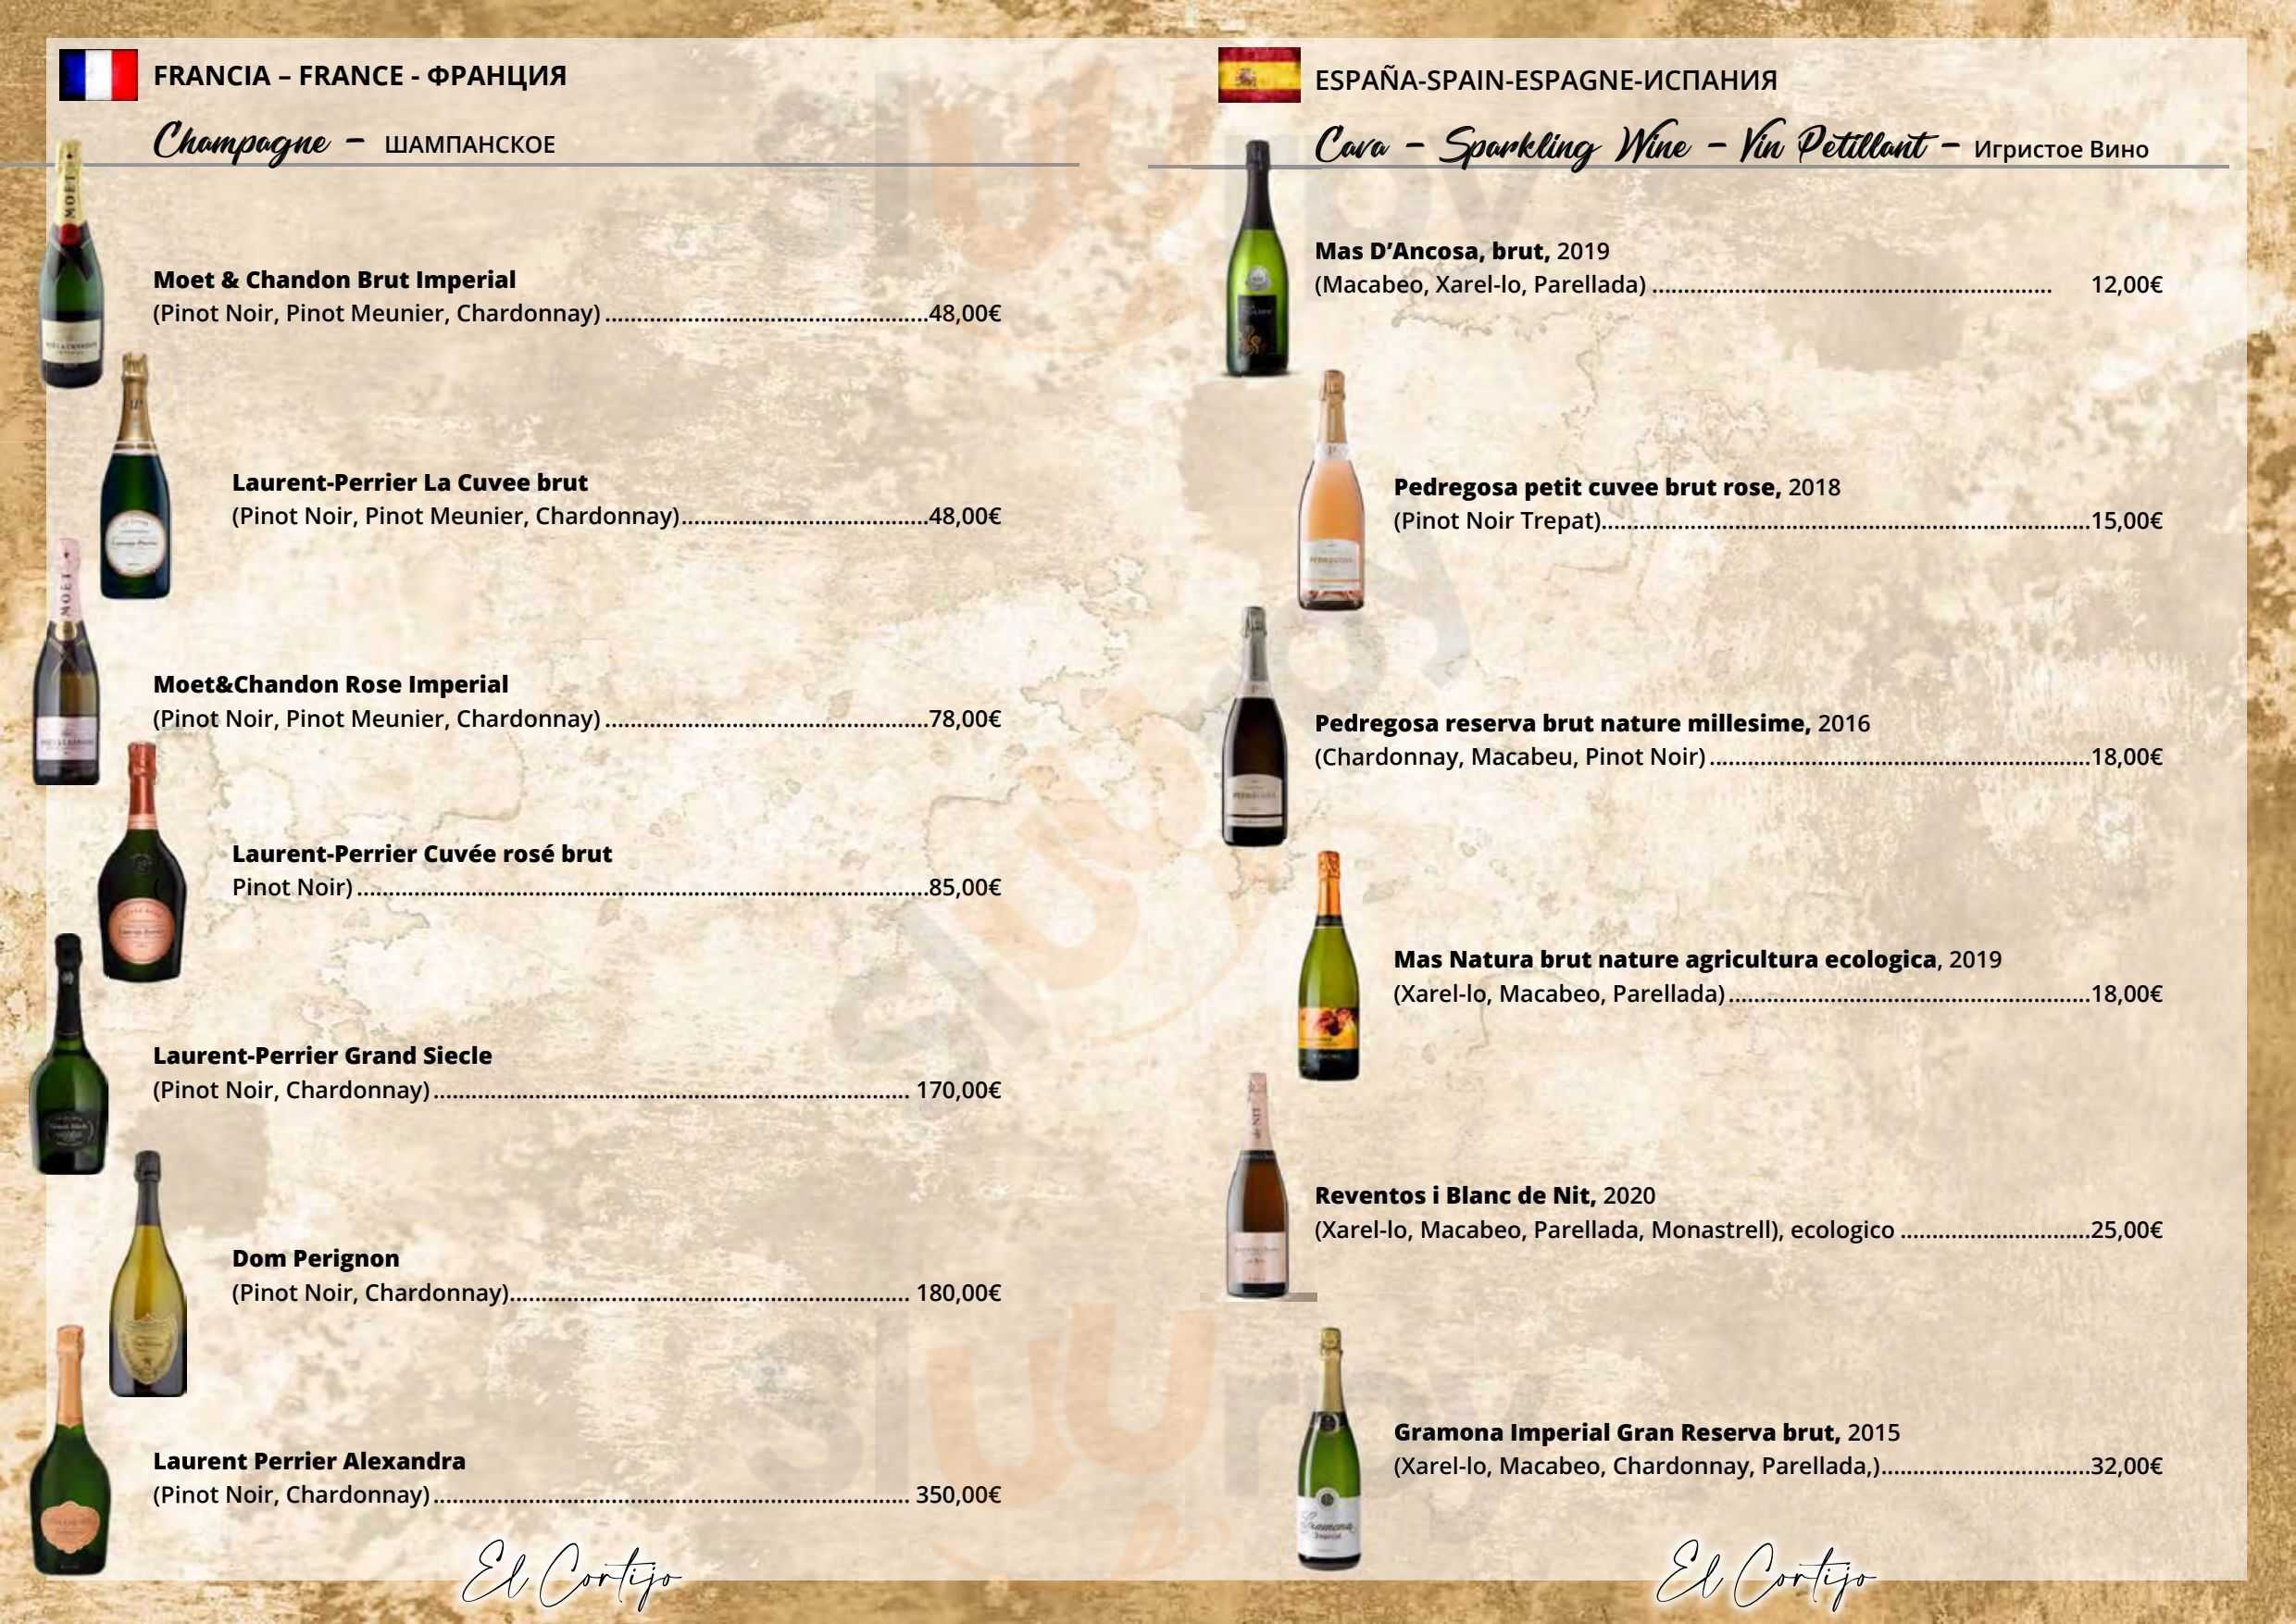 FRANCIA – FRANCE - ФРАНЦИЯ
Champagne – ШАМПАНСКОЕ
Moet & Chandon Brut Imperial
(Pinot Noir, Pinot Meunier, Chardonnay) ....................................................48,00€
Laurent-Perrier La Cuvee brut
(Pinot Noir, Pinot Meunier, Chardonnay).......................................48,00€
Moet&Chandon Rose Imperial
(Pinot Noir, Pinot Meunier, Chardonnay) ....................................................78,00€
Laurent-Perrier Cuvée rosé brut
Pinot Noir) ...........................................................................................85,00€
Laurent-Perrier Grand Siecle
(Pinot Noir, Chardonnay)............................................................................ 170,00€
Dom Perignon
(Pinot Noir, Chardonnay)............................................................... 180,00€
Laurent Perrier Alexandra
(Pinot Noir, Chardonnay)............................................................................ 350,00€
El Cortijo
ESPAÑA-SPAIN-ESPAGNE-ИСПАНИЯ
Cava – Sparkling Wine – Vin Petillant – Игристое Вино
Mas D’Ancosa, brut, 2019
(Macabeo, Xarel-lo, Parellada) ................................................................ 12,00€
Pedregosa petit cuvee brut rose, 2018
(Pinot Noir Trepat)..............................................................................15,00€
Pedregosa reserva brut nature millesime, 2016
(Chardonnay, Macabeu, Pinot Noir) .............................................................18,00€
Mas Natura brut nature agricultura ecologica, 2019
(Xarel-lo, Macabeo, Parellada) ..........................................................18,00€
Reventos i Blanc de Nit, 2020
(Xarel-lo, Macabeo, Parellada, Monastrell), ecologico ..............................25,00€
Gramona Imperial Gran Reserva brut, 2015
(Xarel-lo, Macabeo, Chardonnay, Parellada,).................................32,00€
El Cortijo